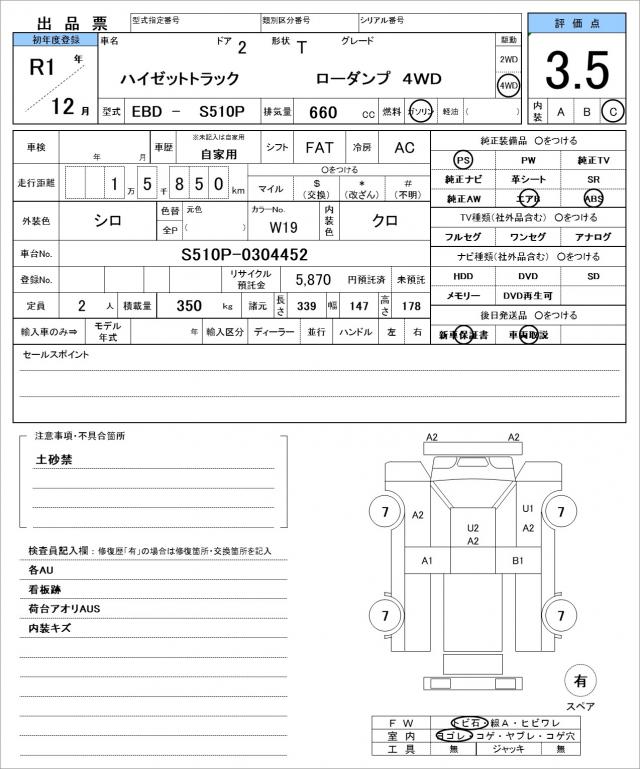 出品票 型式指定番号 類別区分番号 シリアル番号 評価点
初年度登録 車名 ドア 2 形状 T グレード 駆動
R1 年 ハイゼットトラック ローダンプ 4WD 2WD 3.5
12 月 4WD
型式 EBD － S510P 排気量 660 cc 燃料 ガソリン 軽油 ( ) 内装 A B C
車検 年 月 車歴 ※未記入は自家用 自家用 シフト FAT 冷房 AC 純正装備品 〇をつける
PS PW 純正TV
走行距離 1 万 5 千 8 5 0 km 〇をつける
マイル $(交換) *(改ざん) #(不明) 純正ナビ 革シート SR
純正AW エアB ABS
外装色 シロ 色替 元色 カラーNo. W19 内装色 クロ TV種類(社外品含む) 〇をつける
全P ( ) フルセグ ワンセグ アナログ
車台No. S510P-0304452 ナビ種類(社外品含む) 〇をつける
登録No. リサイクル預託金 5,870 円預託済 未預託 HDD DVD SD
定員 2 人 積載量 350 kg 諸元 長さ 339 幅 147 高さ 178 メモリー DVD再生可
後日発送品 〇をつける
輸入車のみ⇒ モデル年式 年 輸入区分 ディーラー 並行 ハンドル 左 右 新車保証書 車両取説
セールスポイント
注意事項・不具合箇所
土砂禁
検査員記入欄：修復歴「有」の場合は修復箇所・交換箇所を記入
各AU
看板跡
荷台アオリAUS
内装キズ
A2 A2
7 A2 U1 7
U2 A2
A2
A1 B1
7 7
A2 A2
有
スペア
FW トビ石・線A・ヒビワレ
室内 ヨゴレ・コゲ・ヤブレ・コゲ穴
工具 無 ジャッキ 無